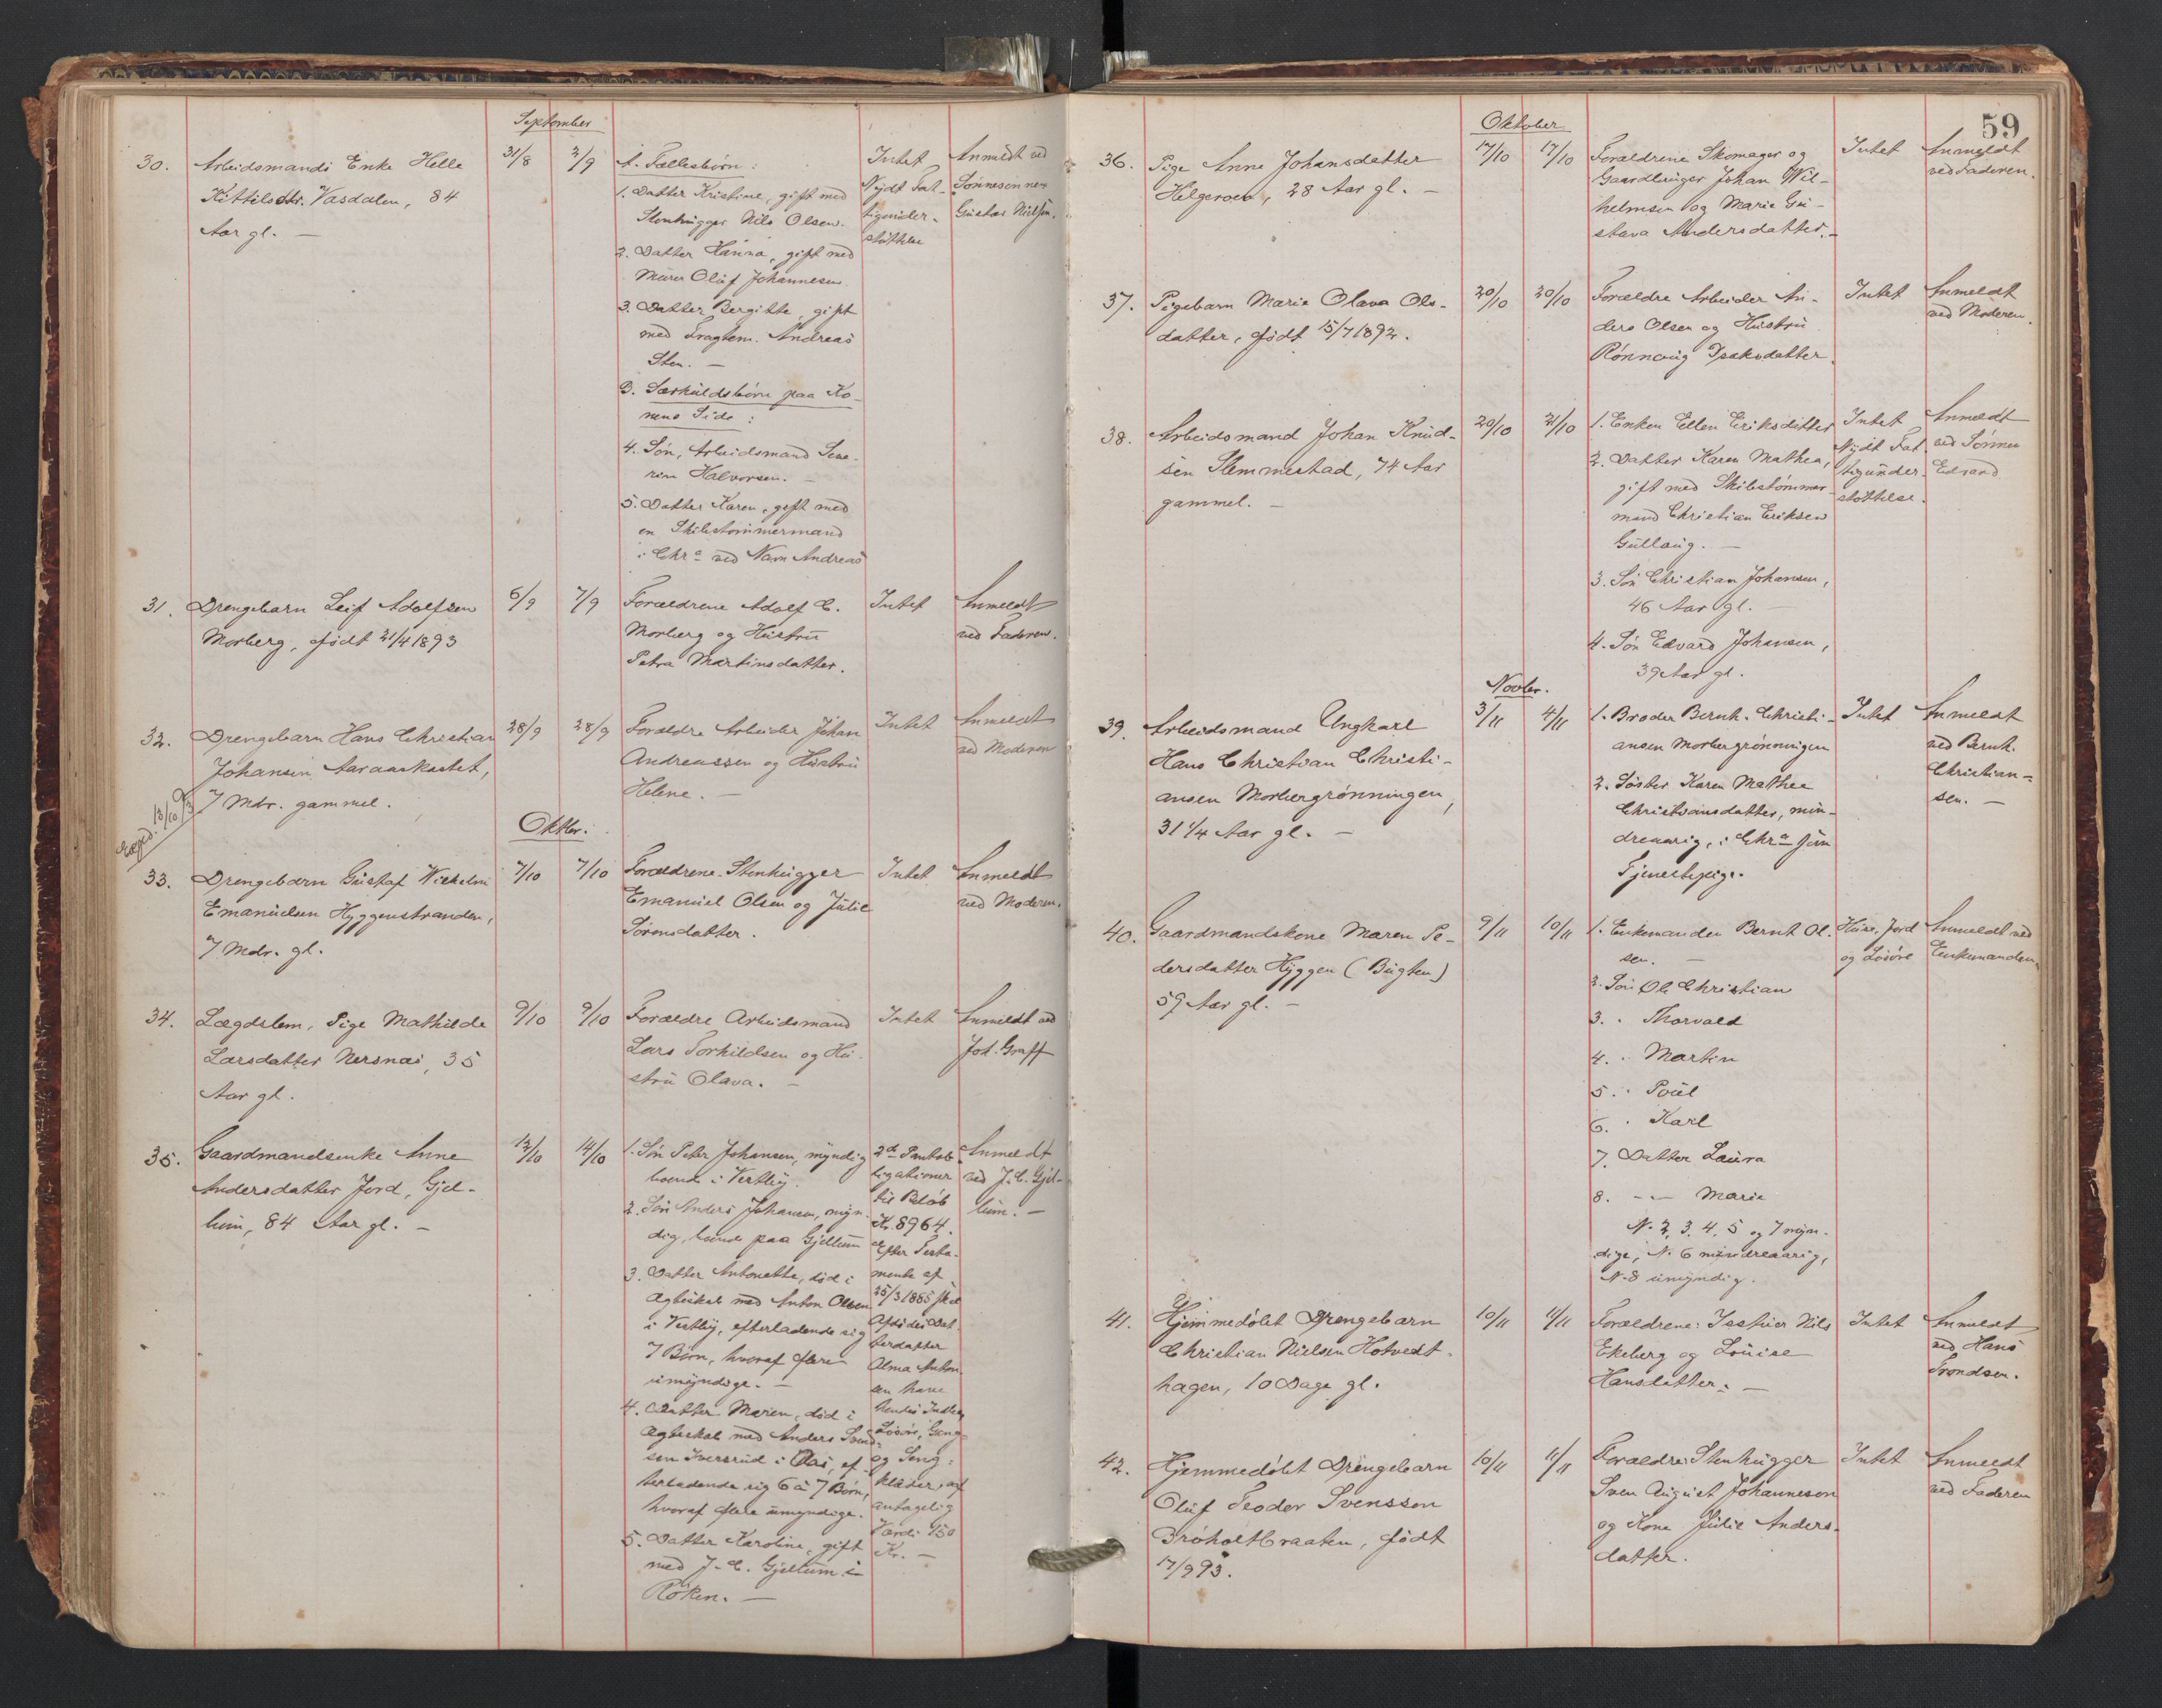 September
30. Arbeidsmands Enke Helle
Kittilsdtr. Vasdalen, 84
Aar gl. —
31/8 2/9
A. Fællesbørn:
1. Datter Kristine, gift med
Stenhugger Nils Olsen.
2. Datter Hanna, gift med
Murer Oluf Johannesen
3. Datter Bergitte, gift
med Fragtem. Andreas
Sten. —
B. Særkuldsbørn paa Ko-
nens Side:
4. Søn, Arbeidsmand Seve-
rin Halvorsen. —
5. Datter Karen, gift med
en Skibstømmermand
i Chra ved Navn Andreas
Intet
Nydt Fat-
tigunder-
støttelse
Anmeldt ved
Sønnesønnen
Gustav Nielsen.
31. Drengebarn Leif Adolfsen
Morberg, født 21/4 1893
6/9 7/9
Forældrene Adolf C.
Morberg og Hustru
Petra Martinsdatter.
Intet
Anmeldt
ved Faderen.
32. Drengebarn Hans Christian
Johansen Aaraaskastet,
7 Mdr. gammel.
28/9 28/9
Forældre Arbeider Johan
Andreassen og Hustru
Helene. —
Intet
Anmeldt
ved Moderen
Exped. 13/10 93
Oktbr.
33. Drengebarn Gustaf Wilhelm
Emanuelsen Hyggenstranden,
7 Mdr. gl.
7/10 7/10
Forældrene Stenhugger
Emanuel Olsen og Julie
Sørensdatter.
Intet
Anmeldt
ved Moderen.
34. Lægdslem, Pige Mathilde
Larsdatter Nersnæs, 35
Aar gl.
9/10 9/10
Forældre Arbeidsmand
Lars Torkildsen og Hu-
stru Olava. —
Intet
Anmeldt ved
Joh. Graff
35. Gaardmandsenke Anne
Andersdatter Jord, Gjel-
lum, 84 Aar gl. —
13/10 14/10
1. Søn Peter Johansen, myndig
boende i Vestby.
2. Søn Anders Johansen, myn-
dig, boende paa Gjellum
3. Datter Antonette, død i
Ægteskab med Anton Olsen
i Vestby, efterladende sig
7 Børn, hvoraf flere
umyndige. —
4. Datter Maren, død i
Ægteskab med Anders Svend-
sen Iversrud i Aas, ef-
terladende sig 6 à 7 Børn,
hvoraf flere umyndige.
5. Datter Karoline, gift
med J. C. Gjellum i
Røken. —
2de Pantob-
ligationer
til Beløb
Kr. 8964.
Efter Testa-
mente af
25/3 1885 skal
Afdødes Dat-
terdatter
Alma Anton-
sen have
hendes Indbo,
Løsøre, Gang-
og Seng-
klæder, af
antagelig
Værdi 150
Kr. —
Anmeldt
ved J. C. Gjel-
lum. —
59
Oktober
36. Pige Anne Johansdatter
Helgeroen, 28 Aar gl. —
17/10 17/10
Forældrene Skomager og
Gaardbruger Johan Wil-
helmsen og Marie Gu-
stava Andersdatter. —
Intet
Anmeldt
ved Faderen.
37. Pigebarn Marie Olava Ols-
datter, født 15/7 1892.
20/10 20/10
Forældre Arbeider An-
ders Olsen og Hustru
Rønnaug Isaksdatter.
Intet
Anmeldt
ved Moderen.
38. Arbeidsmand Johan Knud-
sen Slemmestad, 74 Aar
gammel. —
20/10 21/10
1. Enken Ellen Eriksdatter
2. Datter Karen Mathea,
gift med Skibstømmer-
mand Christian Eriksen
Gullaug. —
3. Søn Christian Johansen,
46 Aar gl. —
4. Søn Edvard Johansen,
39 Aar gl.
Intet
Nydt Fat-
tigunder-
støttelse.
Anmeldt
ved Sønnen
Edvard
Novbr.
39. Arbeidsmand Ungkarl
Hans Christian Christi-
ansen Morbergrønningen,
31 1/4 Aar gl. —
3/11 4/11
1. Broder Bernh. Christi-
ansen Morbergrønningen
2. Søster Karen Mathea
Christiansdatter, min-
dreaarig, i Chra som
Tjenestepige.
Intet
Anmeldt
ved Bernh.
Christian-
sen. —
40. Gaardmandskone Maren Pe-
dersdatter Hyggen (Bugten)
59 Aar gl. —
9/11 10/11
1. Enkemanden Bernt Ol-
sen. —
2. Søn Ole Christian
3. " Thorvald
4. " Martin
5. " Poul
6. " Karl
7. Datter Laura
8. -"- Marie
N. 2, 3, 4, 5 og 7 myn-
dige, N. 6 mindreaarig,
N. 8 umyndig.
Huse, Jord
og Løsøre
Anmeldt ved
Enkemanden
41. Hjemmedøbt Drengebarn
Christian Nielsen Hotvedt-
hagen, 10 Dage gl.
10/11 11/11
Forældrene: Isskjær Nils
Ekeberg og Louise
Hansdatter. —
Intet
Anmeldt
ved Hans
Trondsen.
42. Hjemmedøbt Drengebarn
Oluf Teodor Svensson
Brøholtbraaten, født
17/9 93.
10/11 11/11
Forældre: Stenhugger
Sven August Johannesen
og Kone Julie Anders-
datter.
Intet
Anmeldt
ved Faderen